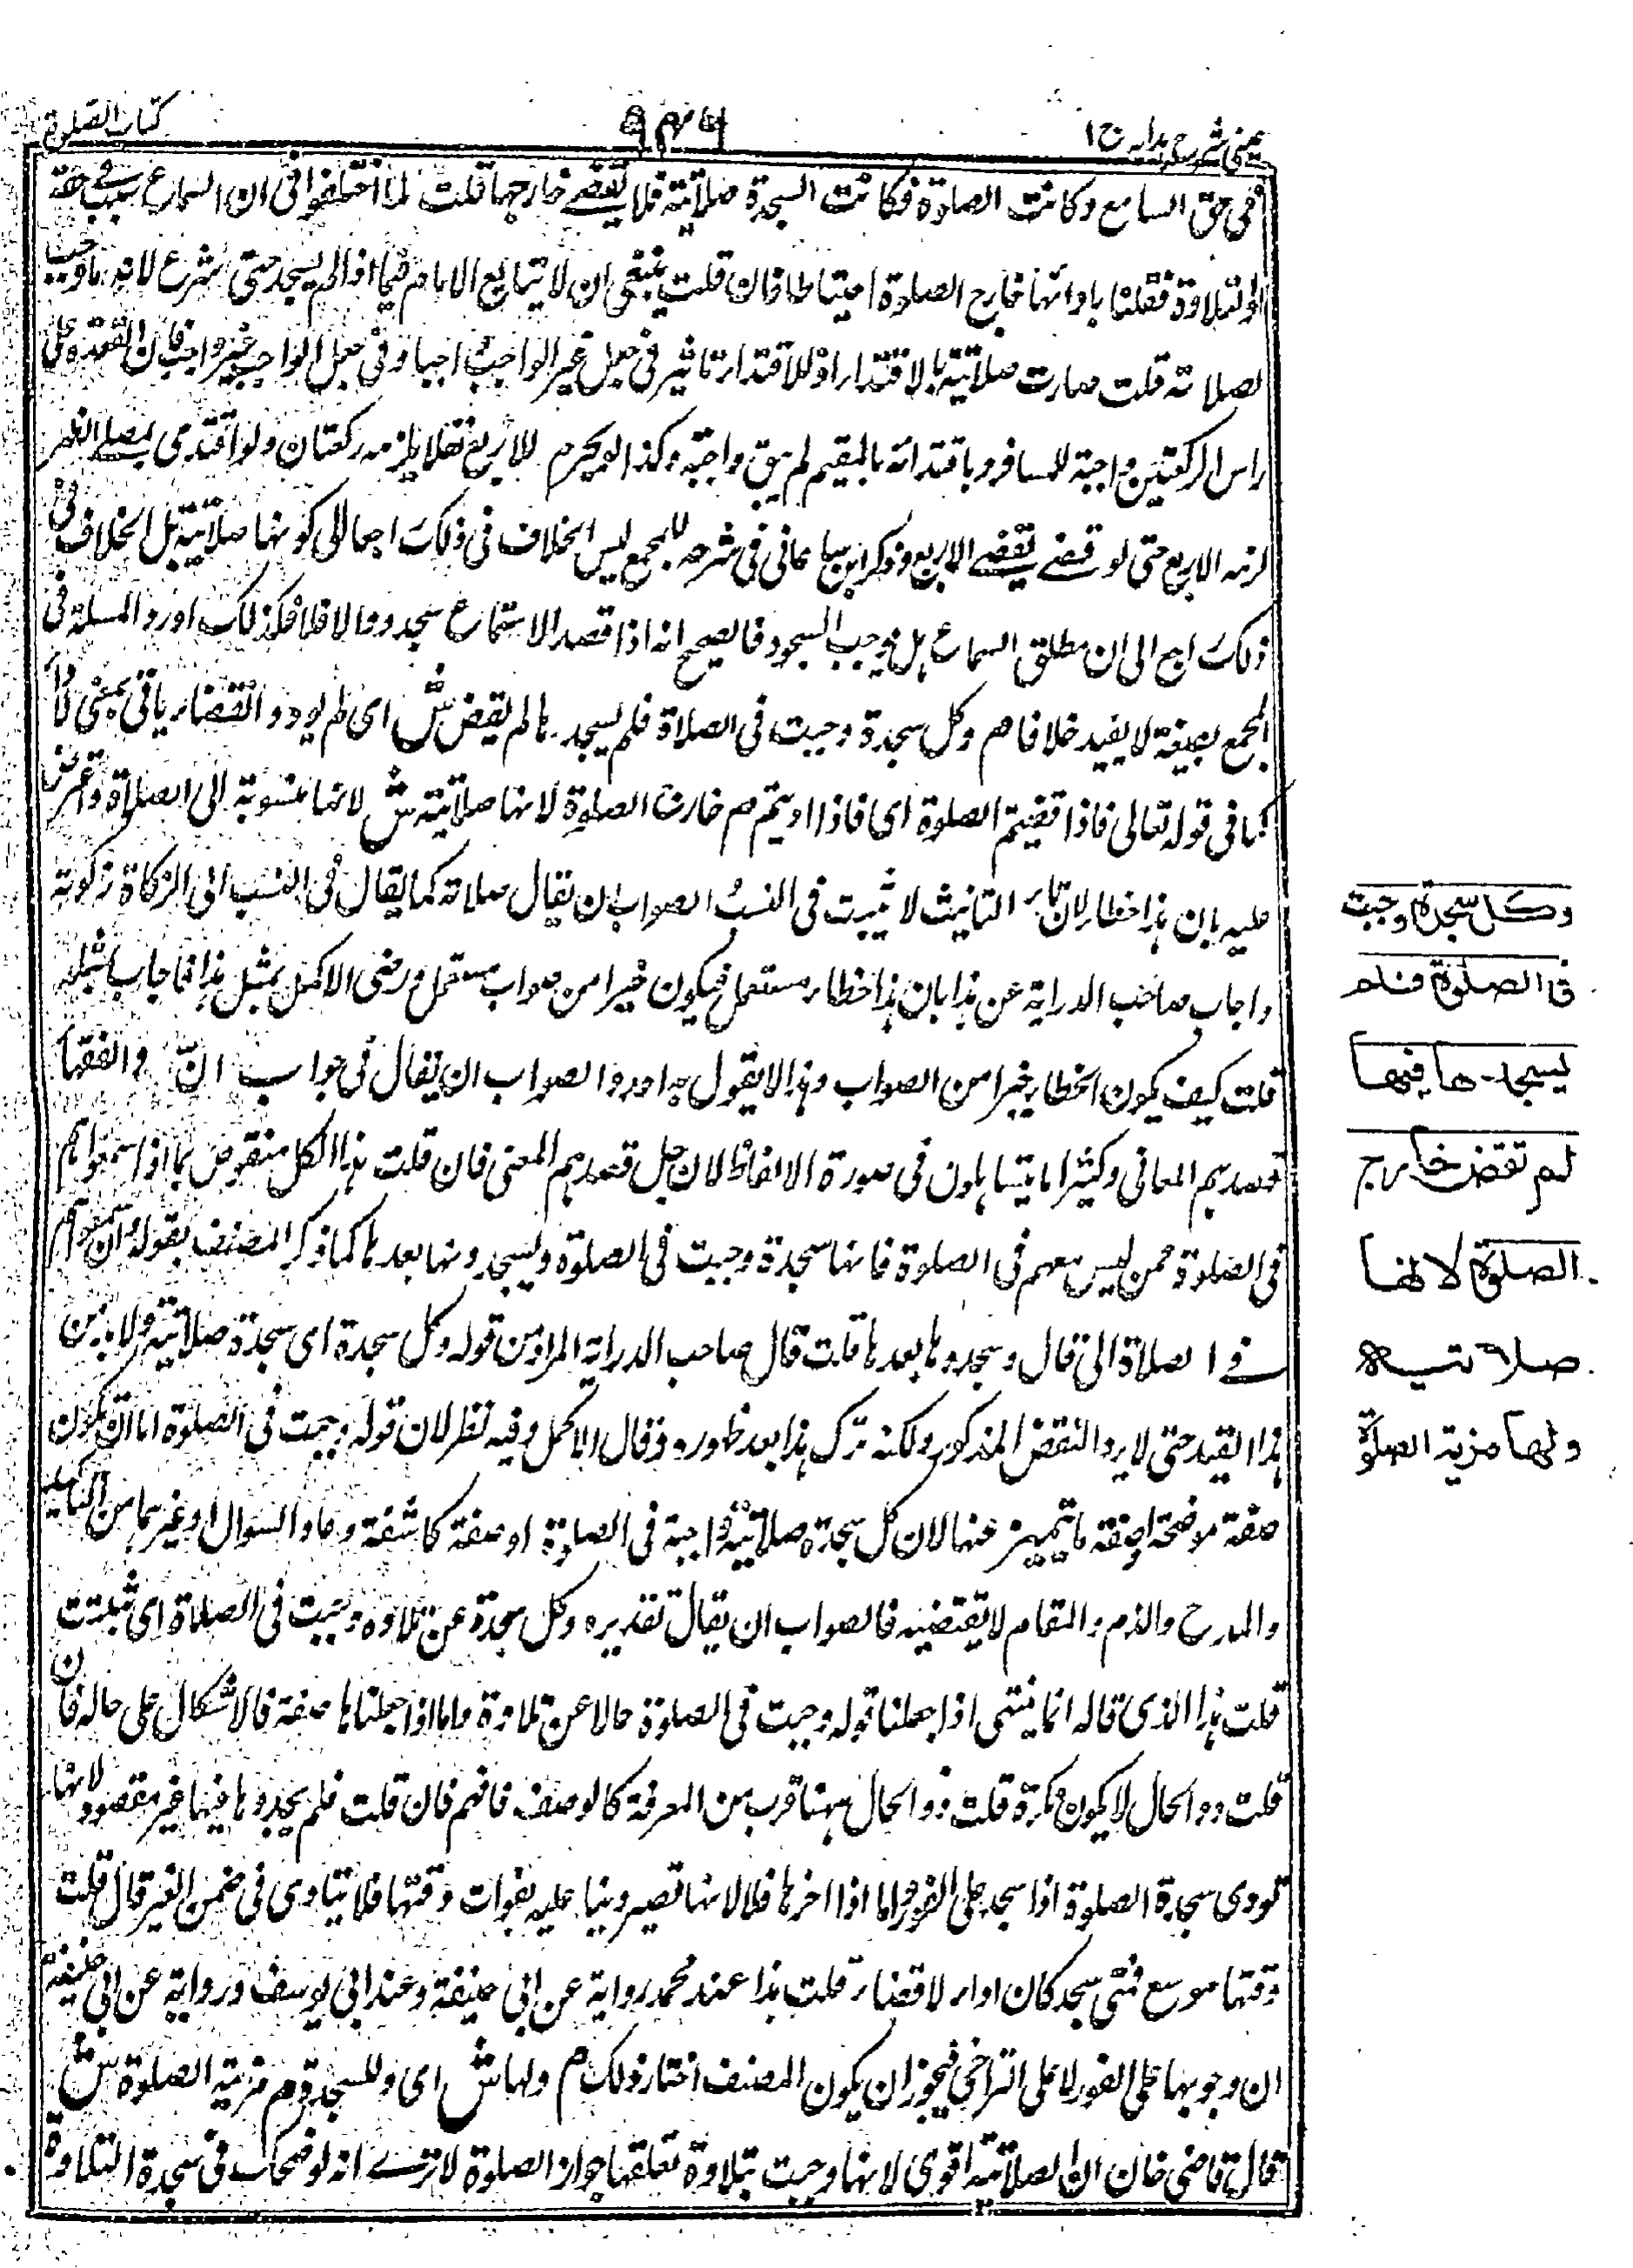 عینی شرح ہدایہ ج ۱
۹۴۶
کتاب الصلوة
فی حق السامع وکانت الصلاوة فکانت السجدة صلاتیة فلا یقضے خارجها قلت لما اختلفوا فی ان السماع سبب فے حقه
او التلاوة فقلنا بادائها خارج الصلوة احتیاطا فان قلت ینبغی ان لا یتابع الامام فیما اذا لم یسجد حتی شرع لانه ما وجب
لصلاته قلت صارت صلاتیة بالاقتداء اذ للاقتداء تاثیر فی جعل غیر الواجب واجبا وفی جعل الواجب غیر واجب فان القعدة علی
راس الرکعتین واجبة للمسافر وباقتدائه بالمقیم لم یبق واجبة وکذا لو یحرم للاربع نفلا یلزمه رکعتان ولو اقتدی بمصلے الظهر
لزمه الاربع حتی لو قضے یقضے الاربع وذکر ابن بیامانی فی شرحه للمجمع لیس الخلاف فی ذلک راجعا الی کونها صلاتیة بل الخلاف فی
ذلک راجع الی ان مطلق السماع هل یوجب السجود فالصحیح انه اذا قصد الاستماع سجد وما لا فلا فلذلک اورد المسئلة فی
المجمع بصیغة لا یفید خلافا هم وکل سجدة وجبت فی الصلاة فلم یسجد ها لم یقض ش ای لم یود والقضاء یاتی بمعنی الاداء
کما فی قوله تعالی فاذا قضیتم الصلوة ای فاذا ادیتم م خارج الصلوة لانها صلاتیة ش لانها منسوبة الی الصلاة واعترض
علیه بان هذا خطاء لان تاء التانیث لا تثبت فی النسب الصواب ان یقال صلاته کما یقال فی النسب الی الزکاة زکویة
واجاب صاحب الدرایة عن هذا بان هذا خطاء مستعمل فیکون خیرا من صواب مستعمل ورضی الاکمل بمثل هذا فاجاب بمثله
قلت کیف یکون الخطاء خیرا من الصواب وهذا لا یقول به احد والصواب ان یقال فی جواب ان الفقهاء
قصدهم المعانی وکثیرا ما یتساهلون فی صورة الالفاظ لان جل قصدهم المعنی فان قلت هذا الکل منقوض بما اذا سمعوا هم
فی الصلوة ممن لیس معهم فی الصلوة فانها سجدة وجبت فی الصلوة ویسجدونها بعدها کما ذکر المصنف بقوله وان سمعوا هم
فے الصلاة الی قال وسجدوها بعدها قلت قال صاحب الدرایة المراد من قوله وکل سجدة ای سجدة صلاتیة ولا بد من
هذا القید حتی لا یرد النقض المذکور ولکنه ترک هذا بعد ظهوره وقال الاکمل وفیه نظر لان قوله وجبت فی الصلوة اما ان یکون
صفة موضحة او صفة ما یتمییز عنها لان کل سجدة صلاتیة واجبة فی الصلوة او صفة کاشفة وعاد السوال او غیرهما من التاکید
والمدح والذم والمقام لا یقتضیه فالصواب ان یقال تقدیره وکل سجدة عن تلاوة وجبت فی الصلاة ای ثبتت
قلت هذا الذی قاله انما ینتهی اذا جعلنا قوله وجبت فی الصلوة حالا عن تلاوة واما اذا جعلناها صفة فالاشکال علی حاله فان
قلت ذو الحال لا یکون نکرة قلت ذو الحال ههنا قرب من المعرفة کالوصف فافهم فان قلت فلم یجدوها فیها غیر مقصود لانها
تودی سجدة الصلوة اذا سجد علی الفور واما اذا اخرها فلا لانها تصیر دینا علیه بفوات وقتها فلا یتادی فی ضمن الغیر قال قلت
وقتها موسع فمتی سجد کان اداء لا قضاء قلت هذا عند محمد روایة عن ابی حنیفة وعند ابی یوسف وروایة عن ابی حنیفة
ان وجوبها علی الفور لا علی التراخی فیجوز ان یکون المصنف اختار ذلک م ولها ش ای وللسجدة م مزیة الصلوة ش
قال قاضی خان ان الصلاتیة اقوی لانها وجبت بتلاوة تعلقها جواز الصلوة لا ترے انه لو ضحک فی سجدة التلاوة
وکل سجدة وجبت
فی الصلوة فلم
یسجد ها فیها
لم تقض خارج
الصلوة لانها
صلاتیه
ولها مزیة الصلوة